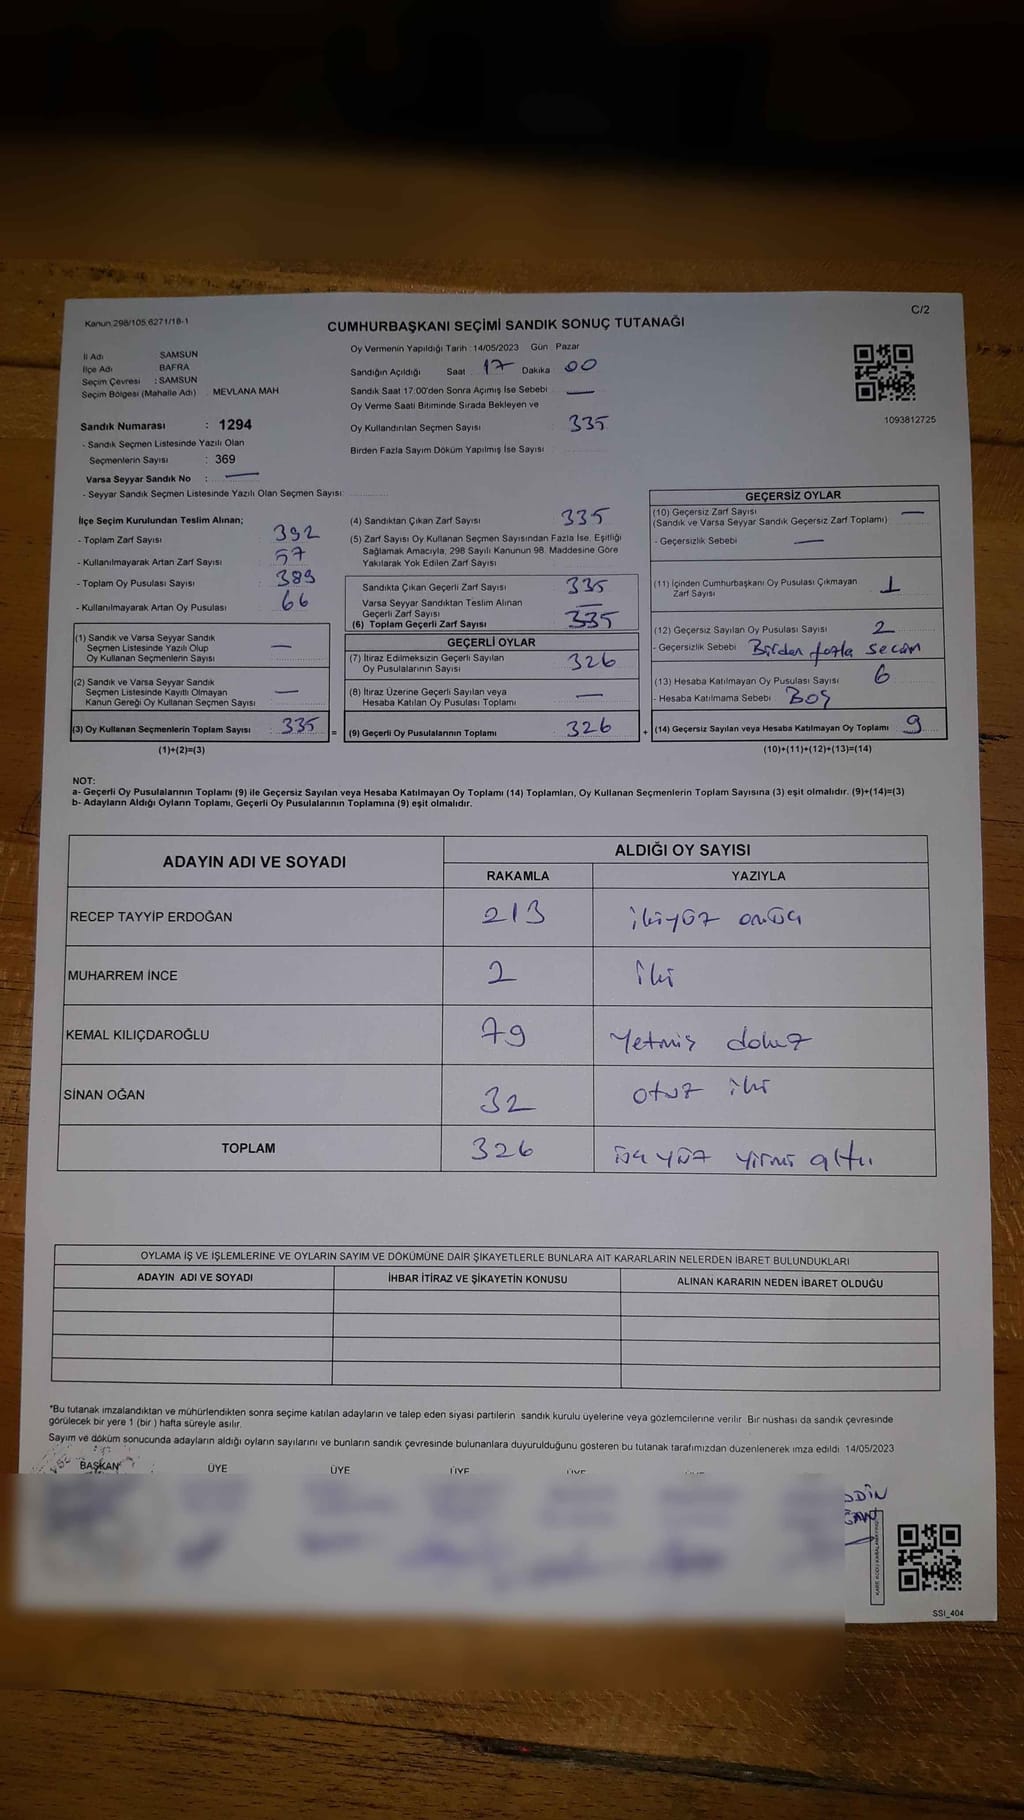 Kanun 298/105,6271/18-1
C/2
CUMHURBAŞKANI SEÇİMİ SANDIK SONUÇ TUTANAĞI
İl Adı SAMSUN
İlçe Adı BAFRA
Seçim Çevresi : SAMSUN
Seçim Bölgesi (Mahalle Adı) MEVLANA MAH
Sandık Numarası : 1294
- Sandık Seçmen Listesinde Yazılı Olan
Seçmenlerin Sayısı : 369
Varsa Seyyar Sandık No : —
- Seyyar Sandık Seçmen Listesinde Yazılı Olan Seçmen Sayısı:
Oy Vermenin Yapıldığı Tarih : 14/05/2023 Gün Pazar
Sandığın Açıldığı Saat 17 Dakika 00
Sandık Saat 17:00'den Sonra Açımış İse Sebebi —
Oy Verme Saati Bitiminde Sırada Bekleyen ve
Oy Kullandırılan Seçmen Sayısı 335
Birden Fazla Sayım Döküm Yapılmış İse Sayısı
1093812725
İlçe Seçim Kurulundan Teslim Alınan;
- Toplam Zarf Sayısı 392
- Kullanılmayarak Artan Zarf Sayısı 57
- Toplam Oy Pusulası Sayısı 389
- Kullanılmayarak Artan Oy Pusulası 66
(1) Sandık ve Varsa Seyyar Sandık
Seçmen Listesinde Yazılı Olup
Oy Kullanan Seçmenlerin Sayısı —
(2) Sandık ve Varsa Seyyar Sandık
Seçmen Listesinde Kayıtlı Olmayan
Kanun Gereği Oy Kullanan Seçmen Sayısı —
(3) Oy Kullanan Seçmenlerin Toplam Sayısı 335 =
(1)+(2)=(3)
(4) Sandıktan Çıkan Zarf Sayısı 335
(5) Zarf Sayısı Oy Kullanan Seçmen Sayısından Fazla İse, Eşitliği
Sağlamak Amacıyla, 298 Sayılı Kanunun 98. Maddesine Göre
Yakılarak Yok Edilen Zarf Sayısı
Sandıkta Çıkan Geçerli Zarf Sayısı 335
Varsa Seyyar Sandıktan Teslim Alınan
Geçerli Zarf Sayısı —
(6) Toplam Geçerli Zarf Sayısı 335
GEÇERLİ OYLAR
(7) İtiraz Edilmeksizin Geçerli Sayılan
Oy Pusulalarının Sayısı 326
(8) İtiraz Üzerine Geçerli Sayılan veya
Hesaba Katılan Oy Pusulası Toplamı —
(9) Geçerli Oy Pusulalarının Toplamı 326 +
GEÇERSİZ OYLAR
(10) Geçersiz Zarf Sayısı —
(Sandık ve Varsa Seyyar Sandık Geçersiz Zarf Toplamı)
- Geçersizlik Sebebi —
(11) İçinden Cumhurbaşkanı Oy Pusulası Çıkmayan
Zarf Sayısı 1
(12) Geçersiz Sayılan Oy Pusulası Sayısı 2
- Geçersizlik Sebebi Birden fazla seçim
(13) Hesaba Katılmayan Oy Pusulası Sayısı 6
- Hesaba Katılmama Sebebi Boş
(14) Geçersiz Sayılan veya Hesaba Katılmayan Oy Toplamı 9
(10)+(11)+(12)+(13)=(14)
NOT:
a- Geçerli Oy Pusulalarının Toplamı (9) ile Geçersiz Sayılan veya Hesaba Katılmayan Oy Toplamı (14) Toplamları, Oy Kullanan Seçmenlerin Toplam Sayısına (3) eşit olmalıdır. (9)+(14)=(3)
b- Adayların Aldığı Oyların Toplamı, Geçerli Oy Pusulalarının Toplamına (9) eşit olmalıdır.
ADAYIN ADI VE SOYADI ALDIĞI OY SAYISI
RAKAMLA YAZIYLA
RECEP TAYYİP ERDOĞAN 213 ikiyüz onüç
MUHARREM İNCE 2 iki
KEMAL KILIÇDAROĞLU 79 Yetmiş dokuz
SİNAN OĞAN 32 otuz iki
TOPLAM 326 üç yüz yirmi altı
OYLAMA İŞ VE İŞLEMLERİNE VE OYLARIN SAYIM VE DÖKÜMÜNE DAİR ŞİKAYETLERLE BUNLARA AİT KARARLARIN NELERDEN İBARET BULUNDUKLARI
ADAYIN ADI VE SOYADI İHBAR İTİRAZ VE ŞİKAYETİN KONUSU ALINAN KARARIN NEDEN İBARET OLDUĞU
*Bu tutanak imzalandıktan ve mühürlendikten sonra seçime katılan adayların ve talep eden siyasi partilerin sandık kurulu üyelerine veya gözlemcilerine verilir. Bir nüshası da sandık çevresinde
görülecek bir yere 1 (bir ) hafta süreyle asılır.
Sayım ve döküm sonucunda adayların aldığı oyların sayılarını ve bunların sandık çevresinde bulunanlara duyurulduğunu gösteren bu tutanak tarafımızdan düzenlenerek imza edildi 14/05/2023
BAŞKAN ÜYE ÜYE ÜYE
DDİN
SSİ_404